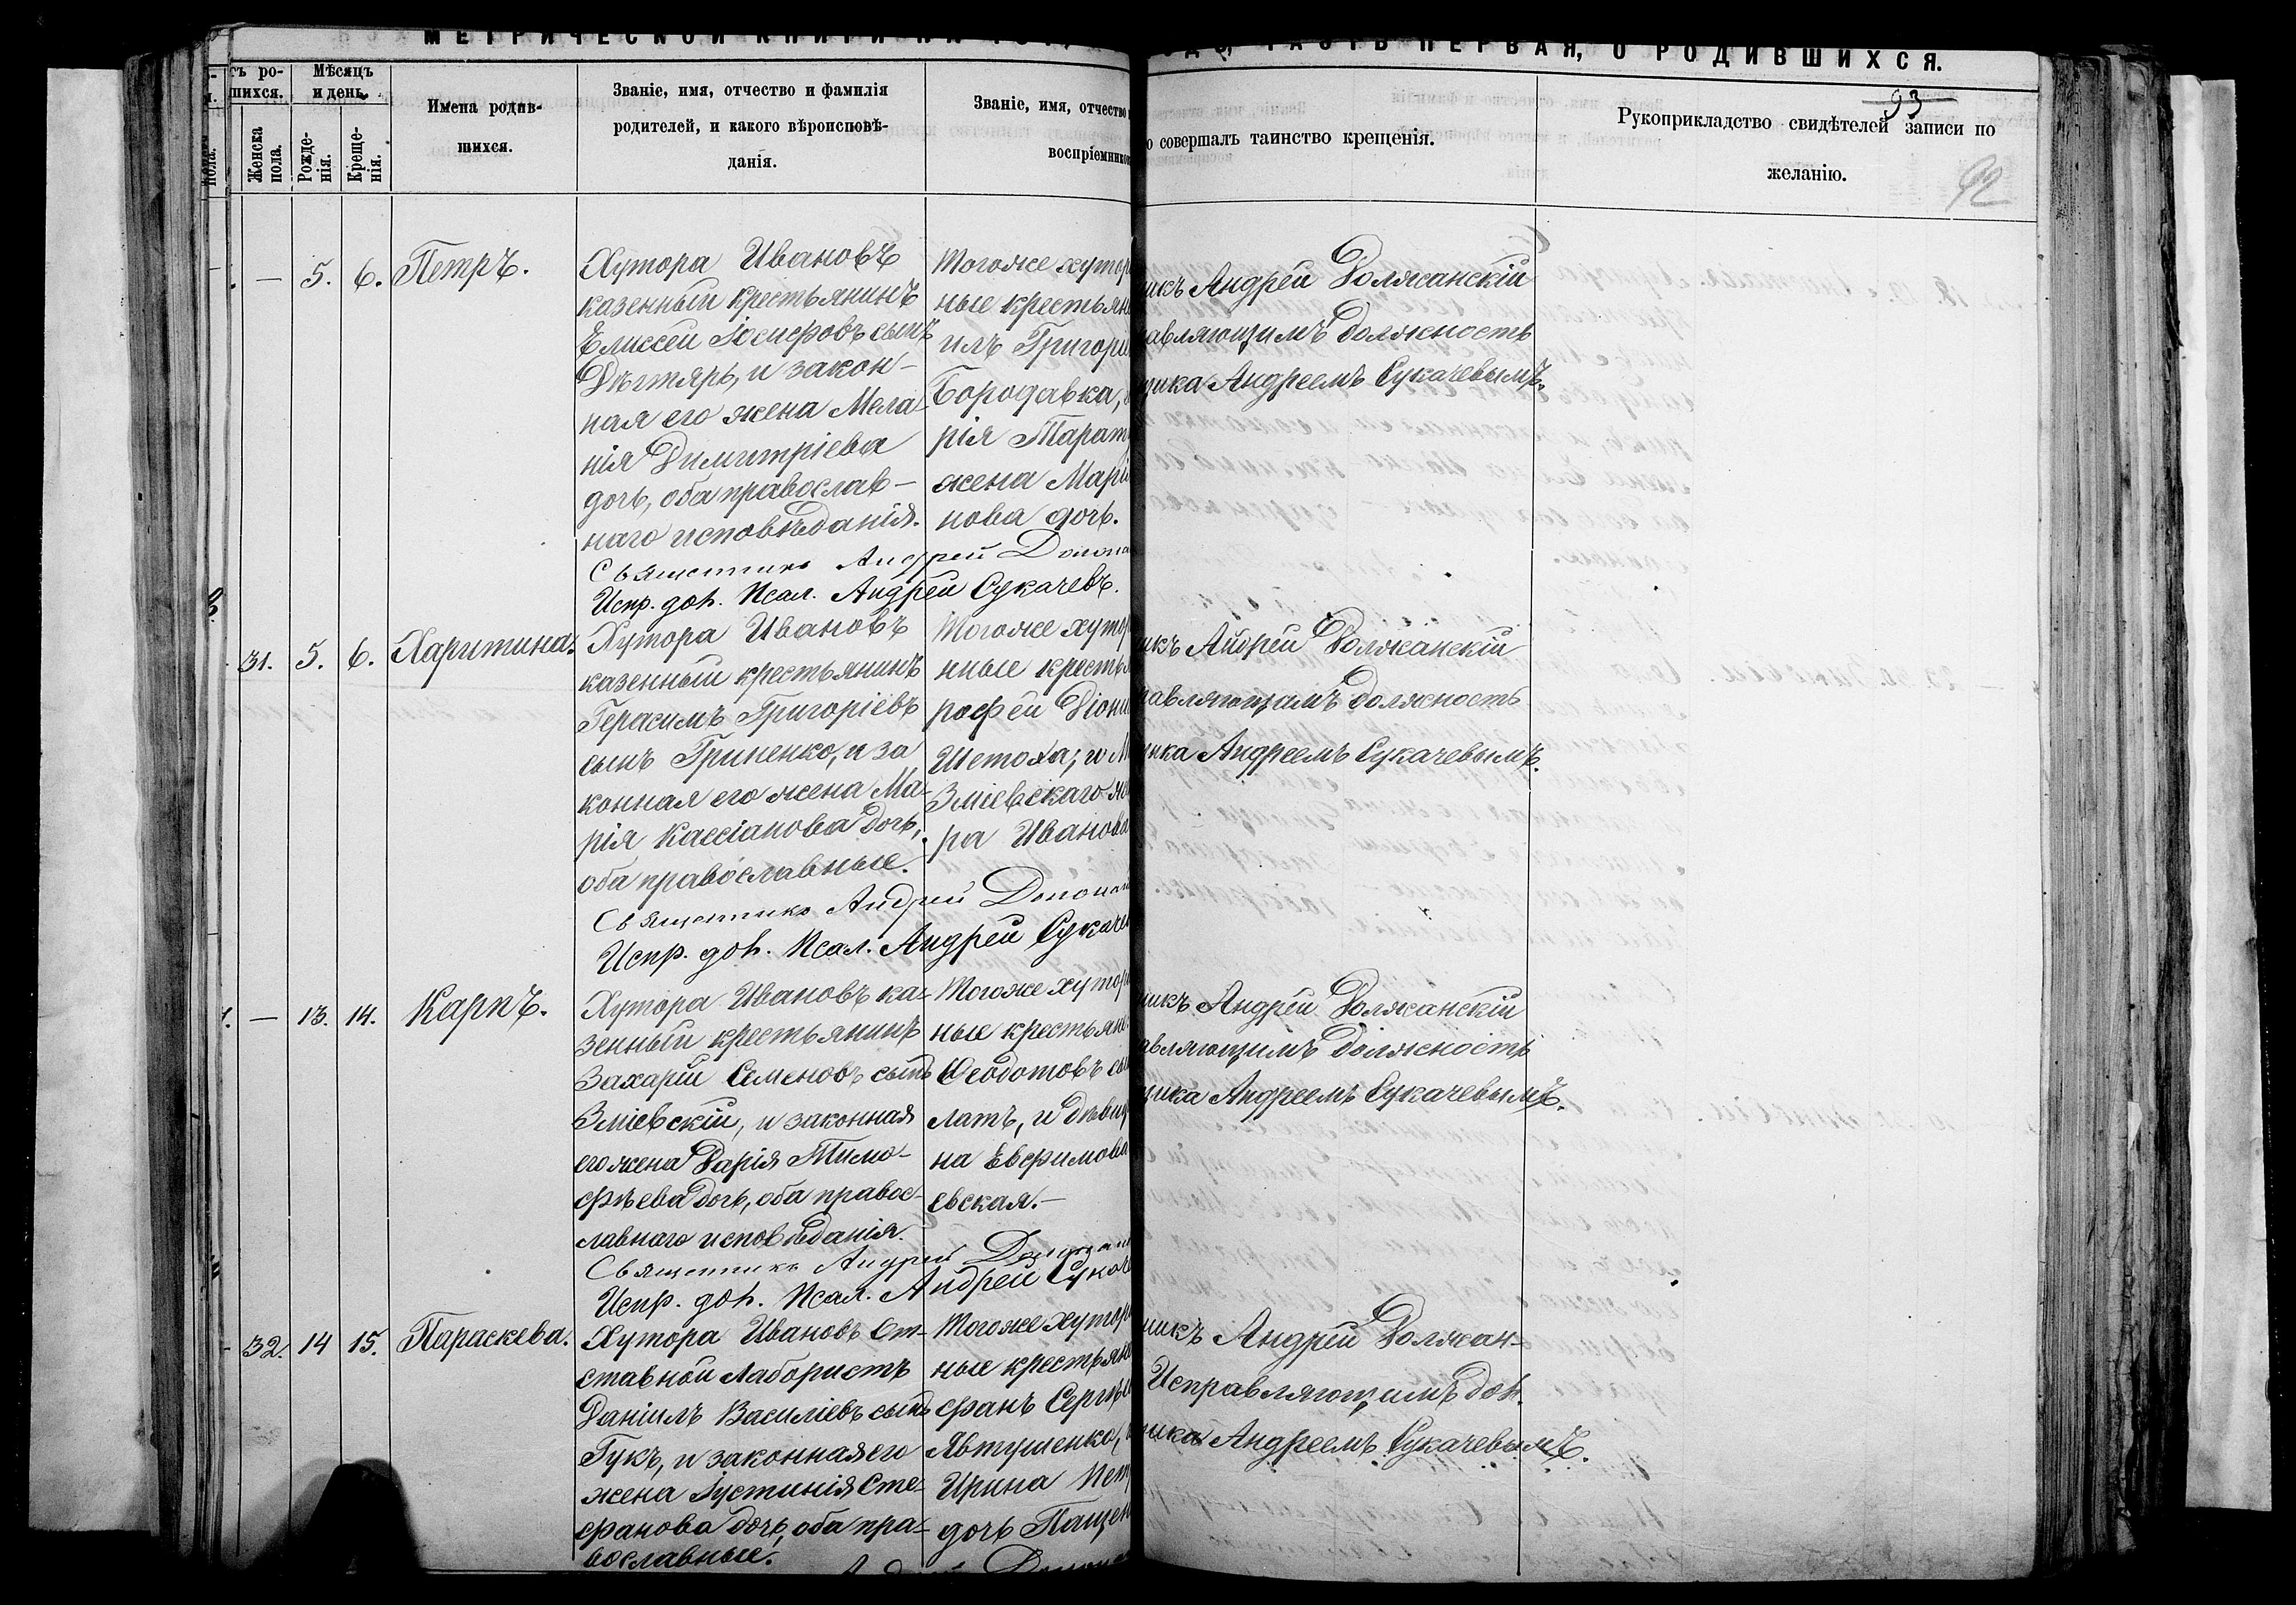 МЕТРИЧЕСКОЙ КНИГИ НА
ЧАСТЬ ПЕРВАЯ, О РОДИВШИХСЯ.
93
92
шихся.
Мѣсяцъ
и день.
Женска
пола.
Рожде-
нія.
Креще-
нія.
Имена родив-
шихся.
Званіе, имя, отчество и фамилія
родителей, и какого вѣроисповѣ-
данія.
Званіе, имя, отчество
воспріемнико
совершалъ таинство крещенія.
Рукоприкладство свидѣтелей записи по
желанію.
— 5. 6. Петръ.
Хутора Ивановъ
казенный крестьянинъ
Елиссей Іосифовъ сынъ
Дѣгтярь, и закон-
ная его жена Мела-
нія Димитріева
дочь, оба православ-
наго исповѣданія.
Тогоже хутор
ные крестьян
илъ Григорі
Бородавка,
рія Тарат
жена Марі
нова дочь.
икъ Андрей Должанскій
авляющимъ должность
щика Андреемъ Сукачевымъ.
Священникъ Андрей
Испр. дол. Псал. Андрей Сукачевъ.
31. 5. 6. Харитина.
Хутора Ивановъ
казенный крестьянинъ
Герасимъ Григоріевъ
сынъ Гриненко, и за
конная его жена Ма-
рія Кассіанова дочь,
оба православные.
Тогоже хутор
нные крестья
рофей Діони
Шетоха, и М
Зміевскаго
ра Иванова
икъ Андрей Должанскій
равляющимъ должность
щика Андреемъ Сукачевымъ.
Священникъ Андрей
Испр. дол. Псал. Андрей Сукаче
— 13. 14. Карпъ.
Хутора Ивановъ ка-
зенный крестьянинъ
Захарій Семеновъ сынъ
Зміевскій, и законная
его жена Дарія Тимо-
фѣева дочь, оба правос-
лавнаго исповѣданія.
Тогоже хутор
ные крестьяне
Ѳеодотовъ сы
латъ, и дѣвиц
на Евфимова
евская.—
никъ Андрей Должанскій
авляющимъ должность
щика Андреемъ Сукачевымъ.
Священникъ Андрей
Испр. дол. Псал. Андрей Сукаче
32. 14 15. Параскева.
Хутора Ивановъ От-
ставной Лабористъ
Даніилъ Василіевъ сынъ
Гукъ, и законная его
жена Іустинія Сте-
фанова дочь, оба пра-
вославные.
Тогоже хутора
ные крестьяне
фанъ Сергѣе
Явтушенко,
Ирина Пет
дочь Пащен
никъ Андрей Должан-
Исправляющимъ дол.
щика Андреемъ Сукачевымъ.